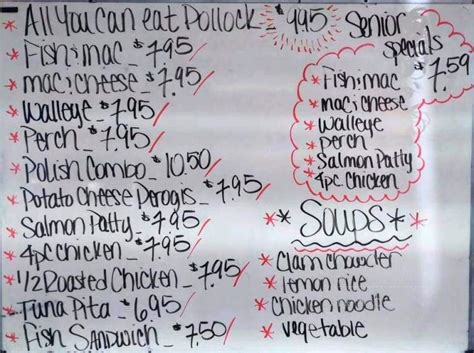 * All You Can eat Pollock - $9.95
* Fish:mac - $7.95
* mac:cheese - $7.95
* Walleye - $7.95
* Perch - $7.95
* Polish Combo - $10.50
* Potato Cheese Perogis - $7.95
* Salmon Patty - $7.95
* 4pc chicken - $7.95
* 1/2 Roasted Chicken - $7.95
* Tuna Pita - $6.95
* Fish Sandwich - $7.50
Senior
Specials
$7.59
* Fish:mac
* mac:cheese
* Walleye
* perch
* Salmon Patty
* 4pc. Chicken
** Soups **
* Clam chowder
* lemon rice
* Chicken noodle
* vegetable